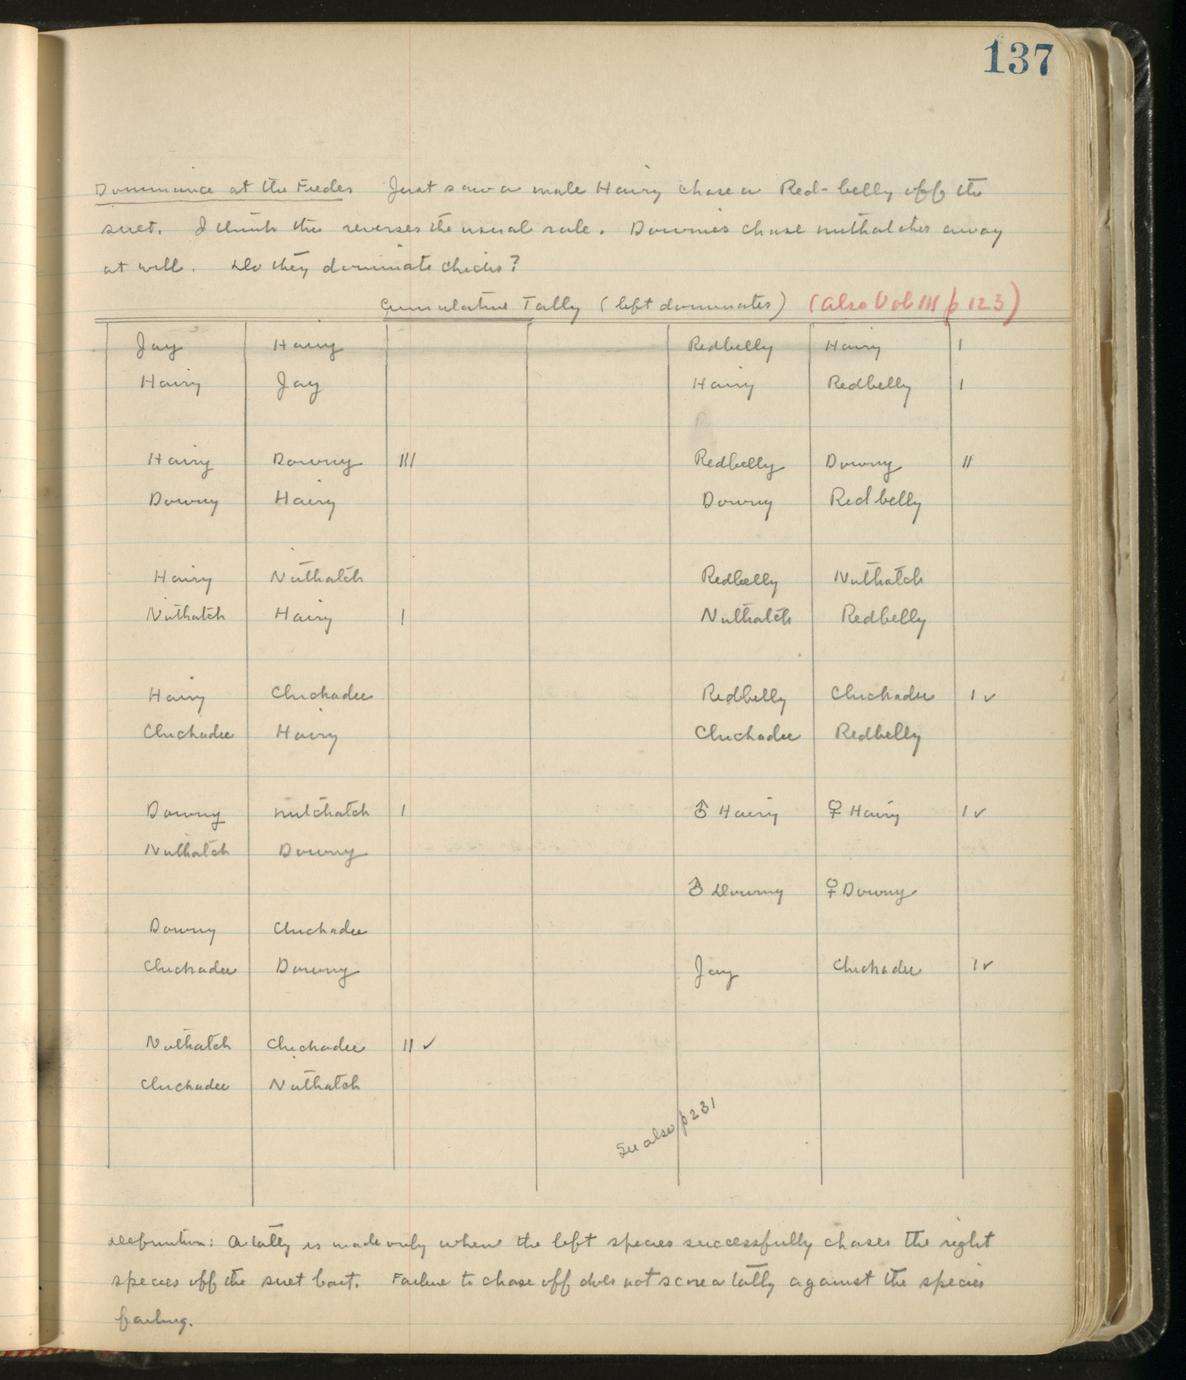 137
Dominance at the Feeder Just saw a male Hairy chase a Red-belly off the
suet. I think this reverses the usual rule. Downies chase nuthatches away
at will. Do they dominate chicks?
Cumulative Tally (left dominates) (Also Vol III p 123)
Jay Hairy Redbelly Hairy I
Hairy Jay Hairy Redbelly I
Hairy Downy III Redbelly Downy II
Downy Hairy Downy Redbelly
Hairy Nuthatch Redbelly Nuthatch
Nuthatch Hairy I Nuthatch Redbelly
Hairy Chickadee Redbelly Chickadee I ✓
Chickadee Hairy Chickadee Redbelly
Downy nuthatch I ♂ Hairy ♀ Hairy I ✓
Nuthatch Downy
♂ Downy ♀ Downy
Downy Chickadee
Chickadee Downy Jay Chickadee I ✓
Nuthatch Chickadee II ✓
Chickadee Nuthatch
See also p 231
Definition: A tally is made only when the left species successfully chases the right
species off the suet bait. Failure to chase off does not score a tally against the species
failing.